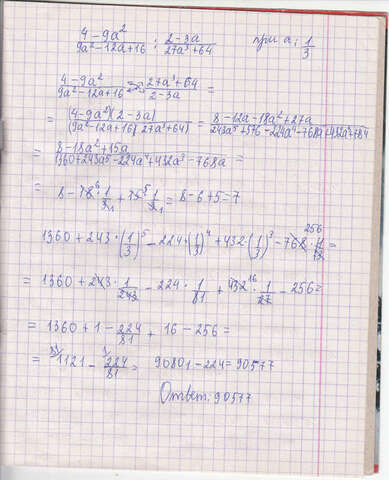 4-9a² / 9a²-12a+16 : 2-3a / 27a³+64 при a: 1/3
4-9a² / 9a²-12a+16 · 27a³+64 / 2-3a =
= (4-9a²)(2-3a) / (9a²-12a+16)(27a³+64) = 8-12a-18a²+27a / 243a⁵+576-224a⁴-768a+432a³+784
= 8-18a²+15a / 1360+243a⁵-224a⁴+432a³-768a =
= 8-18⁶·1/3₁ + 15⁵·1/3₁ = 8-6+5=7
1360+243·(1/3)⁵-224·(1/3)⁴+432·(1/3)³-768²⁵⁶·1/3 =
= 1360+243·1/243-224·1/81+432¹⁶·1/27-256=
= 1360+1-224/81+16-256=
= 1121-224/81= 90801-224=90577
Ответ: 90577